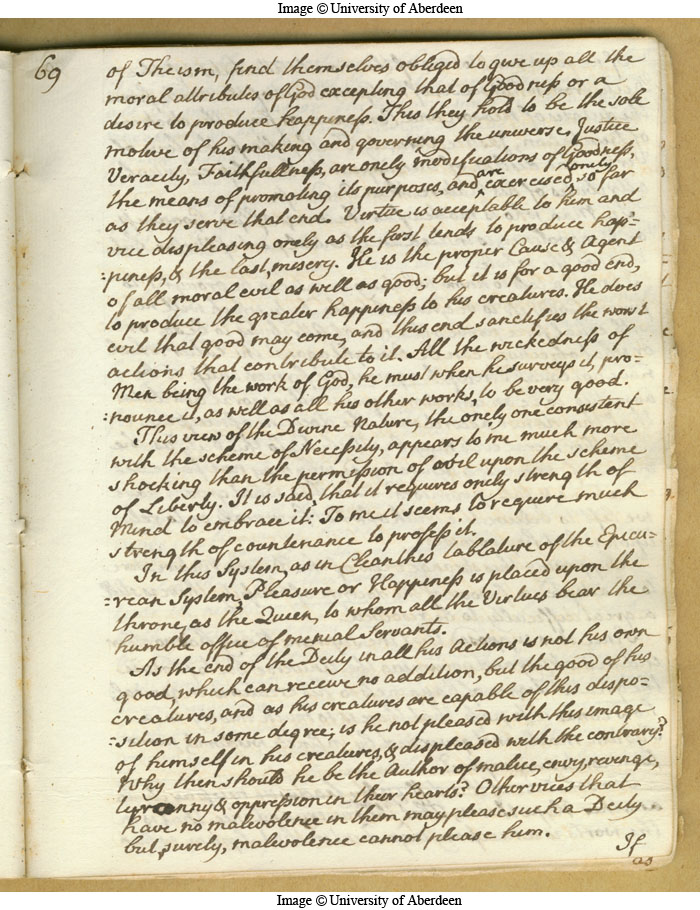 Image © University of Aberdeen
69
of Theism, find themselves obliged to give up all the
moral attributes of God excepting that of Goodness or a
desire to produce happiness. This they hold to be the sole
motive of his making and governing the universe. Justice
Veracity, Faithfullness, are onely modifications of Goodness,
the means of promoting its purposes, and are exercised onely so far
as they serve that end. Virtue is acceptable to him and
vice displeasing onely as the first tends to produce hap=
=piness, & the last misery. He is the proper Cause & Agent
of all moral evil as well as good; but it is for a good end,
to produce the greater happiness to his creatures. He does
evil that good may come, and this end sanctifies the worst
actions that contribute to it. All the wickedness of
Men being the work of God, he must when he surveys it, pro=
=nounce it, as well as all his other works, to be very good.
This view of the Divine Nature, the onely one consistent
with the scheme of Necessity, appears to me much more
shocking than the permission of evil upon the scheme
of Liberty. It is said, that it requires onely strength of
Mind to embrace it: To me it seems to require much
strength of countenance to profess it.
In this System, as in Cleanthes tablature of the Epicu=
=rean System, Pleasure or Happiness is placed upon the
throne, as the Queen, to whom all the Virtues bear the
humble office of menial Servants.
As the end of the Deity in all his Actions is not his own
good, which can receive no addition, but the good of his
creatures, and as his creatures are capable of this dispo=
=sition in some degree; is he not pleased with this image
of himself in his creatures, & displeased with the contrary?
Why then should he be the Author of malice, envy, revenge,
tyranny & oppression in their hearts? Other vices that
have no malevolence in them may please such a Deity
but, surely, malevolence cannot please him.
If
as
Image © University of Aberdeen